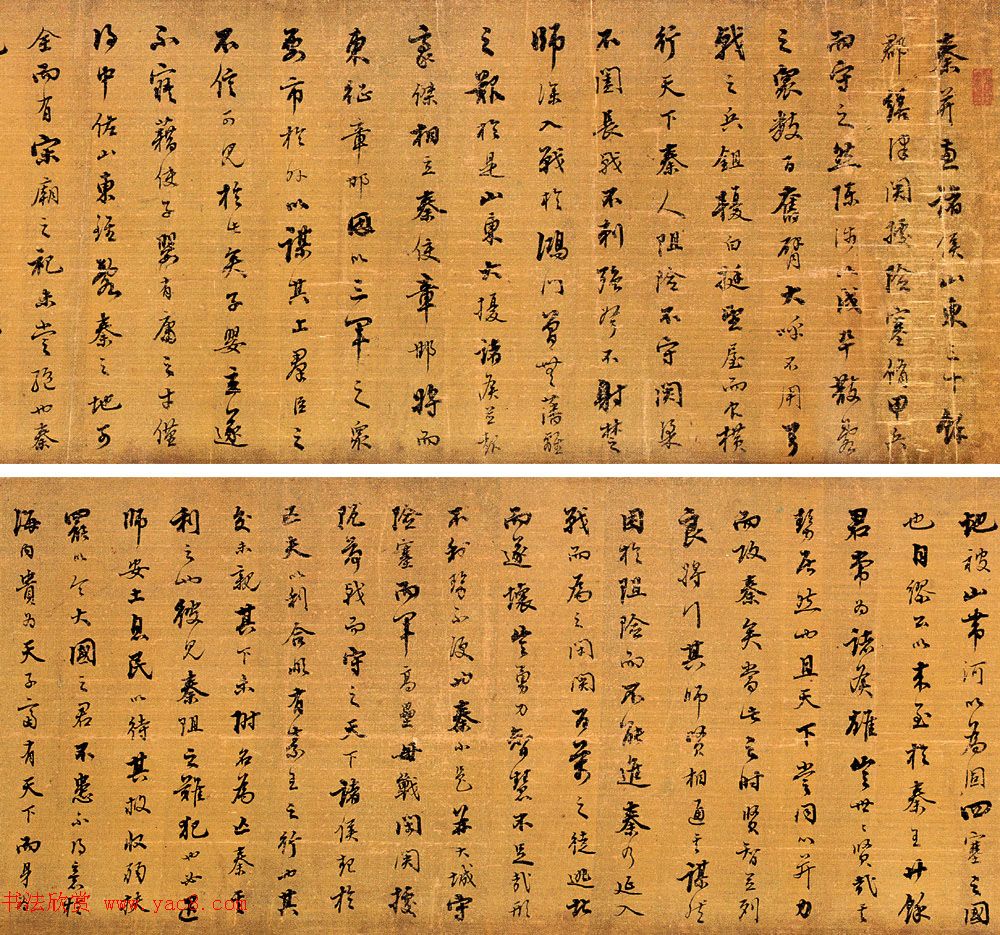 秦并兼諸侯山東三十餘
郡繕津関據險塞脩甲兵
而守之然陳涉以戍卒散亂
之衆數百奮臂大呼不用弓
戟之兵鉏櫌白挺望屋而食横
行天下秦人阻險不守関梁
不闔長戟不刺強弩不射楚
師深入戰於鴻門曾無藩籬
之艱於是山東大擾諸侯並起
豪傑相立秦使章邯將而
東征章邯因以三軍之衆
要市於外以謀其上羣臣之
不信可見於此矣子嬰立遂
不寤藉使子嬰有庸之才僅
得中佐山東雖亂秦之地可
全而有宗廟之祀未當絕也秦
地被山帶河以為固四塞之國
也自繆公以來至於秦王廿餘
君常為諸侯雄豈世〻賢哉其
勢居然也且天下嘗同心并力
而攻秦矣當此之時賢智並列
良將行其師賢相通其謀然
困於阻險而不能進秦乃延入
戰而為之開関百萬之徒逃北
而遂壞豈勇力智慧不足哉形
不利勢不便也秦小邑并大城守
險塞而軍高壘毋戰閉関據
阨荷戟而守之天下諸侯起於
匹夫以利合非有素王之行也其
交未親其下未附名為亡秦實
利之也彼見秦阻之難犯也必退
師安土息民以待其敝收弱扶
罷以令大國之君不患不得意於
海内貴為天子富有天下而身
书法欣赏 www.yac8.com